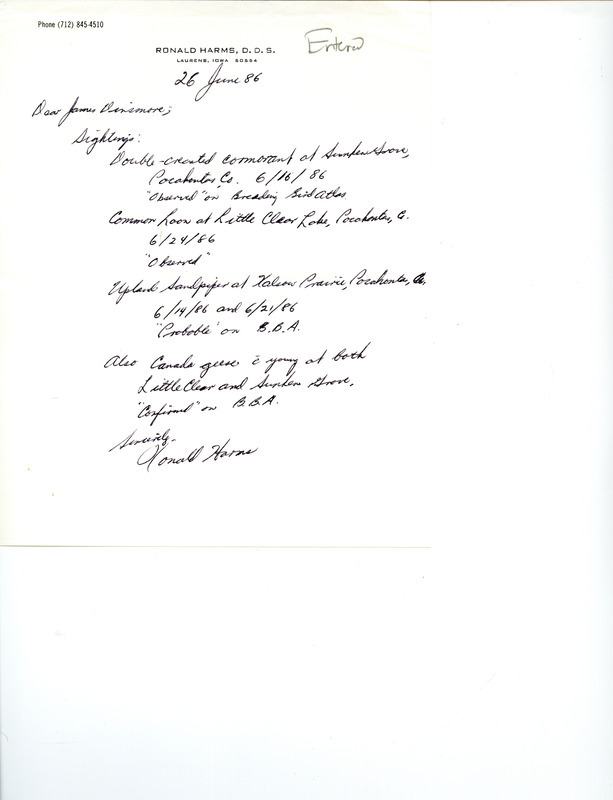 Phone (712) 845-4510
Entered
RONALD HARMS, D. D. S.
LAURENS, IOWA 50554
26 June 86
Dear James Dinsmore;
Sightings:
Double-crested cormorant at Sunken Grove,
Pocahontas Co. 6/16/86
"Observed" on Breeding Bird Atlas
Common Loon at Little Clear Lake, Pocahontas, Co.
6/24/86
"Observed"
Upland Sandpiper at Kalsow Prairie, Pocahontas, Co.
6/14/86 and 6/21/86
"Probable" on B.B.A.
Also Canada geese c̄ young at both
Little Clear and Sunken Grove.
"Confirmed" on B.B.A.
Sincerely-
Ronald Harms